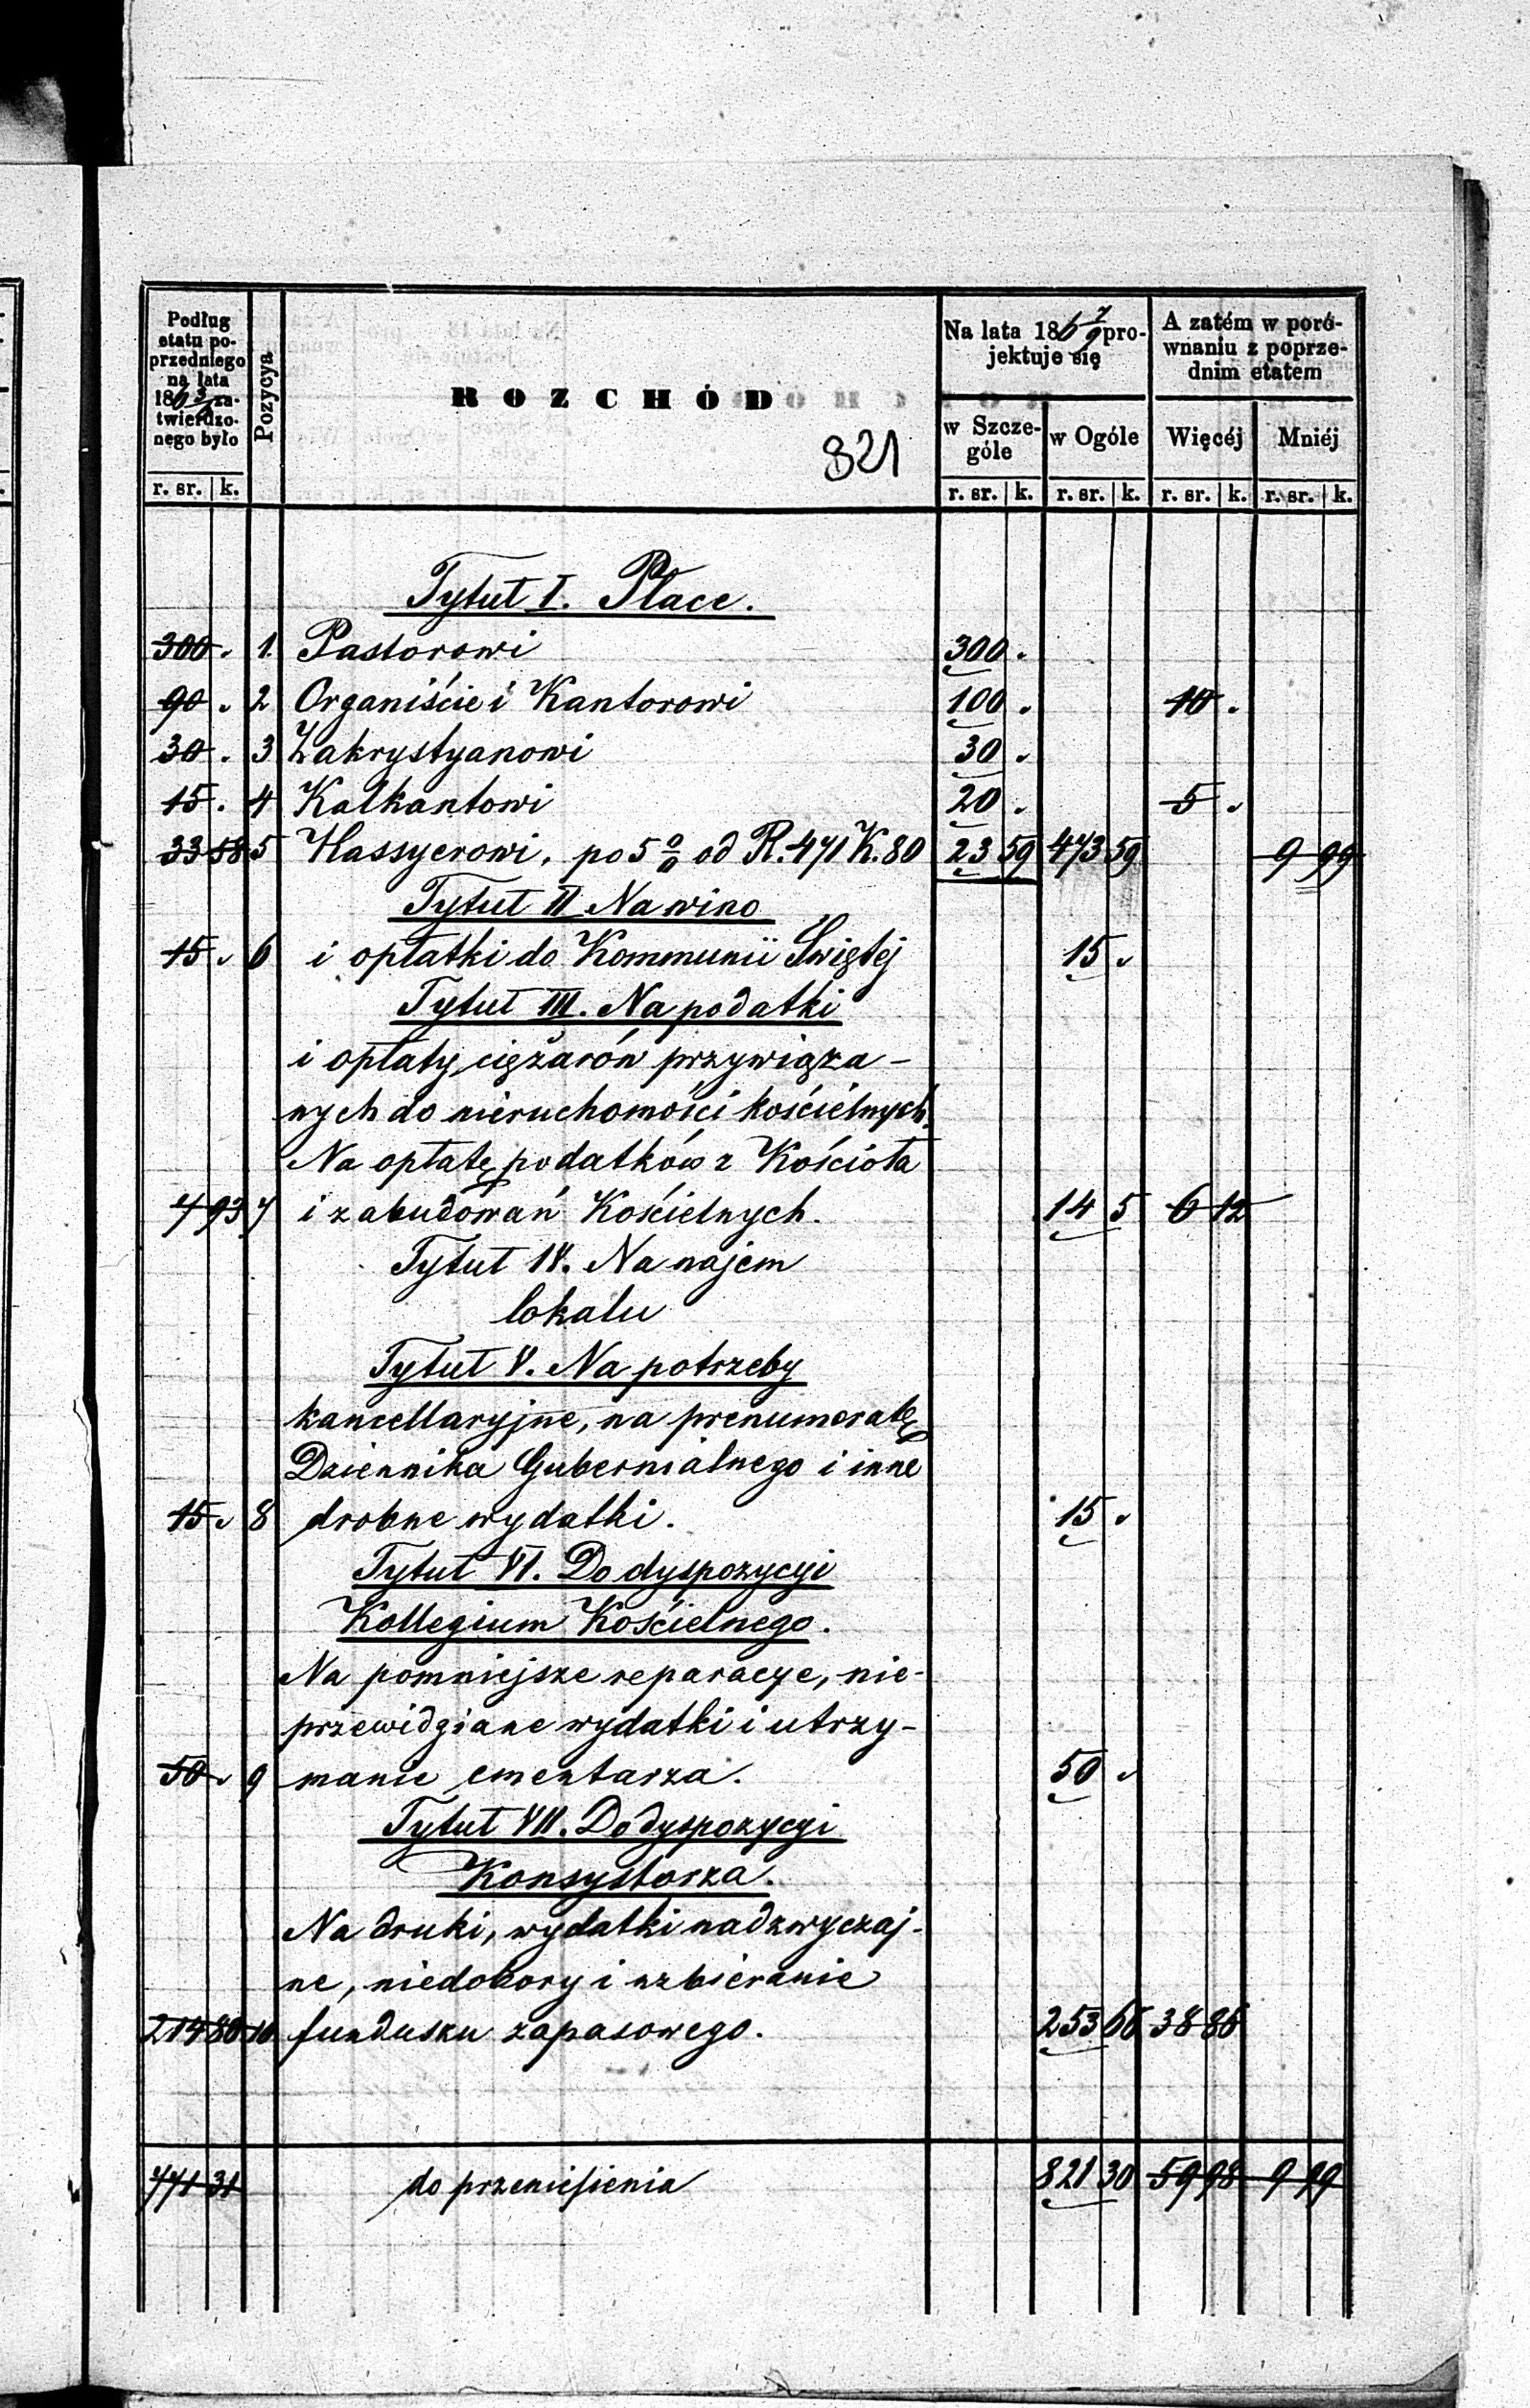 Podług etatu poprzedniego na lata 186 3/ zatwierdzonego było
Pozycya
ROZCHÓD
821
Na lata 186 7/9 projektuje się
A zatém w porównaniu z poprzednim etatem
w Szczególe
w Ogóle
Więcéj
Mniéj
r. sr. k.
r. sr. k. r. sr. k. r. sr. k. r. sr. k.
Tytuł I. Płace.
300 . 1. Pastorowi 300 .
90 . 2 Organiście i Kantorowi 100 . 10 .
30 . 3 Zakrystyanowi 30 .
15 . 4 Kalkantowi 20 . 5 .
33 58 5 Kassyerowi, po 5% od R. 471 K. 80 23 59 473 59 9 99
Tytuł II Na wino
15 . 6 i opłatki do Kommunii Świętej 15 .
Tytuł III. Na podatki
i opłaty ciężarów przywiąza-
nych do nieruchomości kościelnych.
Na opłatę podatków z Kościoła
7 93 7 i zabudowań Kościelnych. 14 5 6 12
Tytuł IV. Na najem
lokalu
Tytuł V. Na potrzeby
kancellaryjne, na prenumeratę
Dziennika Gubernialnego i inne
15 . 8 drobne wydatki. 15 .
Tytuł VI. Do dyspozycyi
Kollegium Kościelnego.
Na pomniejsze reparacye, nie-
przewidziane wydatki i utrzy-
50 . 9 manie cmentarza. 50 .
Tytuł VII. Do dyspozycyi
Konsystorza.
Na druki, wydatki nadzwyczaj-
ne, niedobory i uzbieranie
214 80 10 funduszu zapasowego. 253 66 38 86
771 31 do przeniesienia 821 30 59 98 9 99